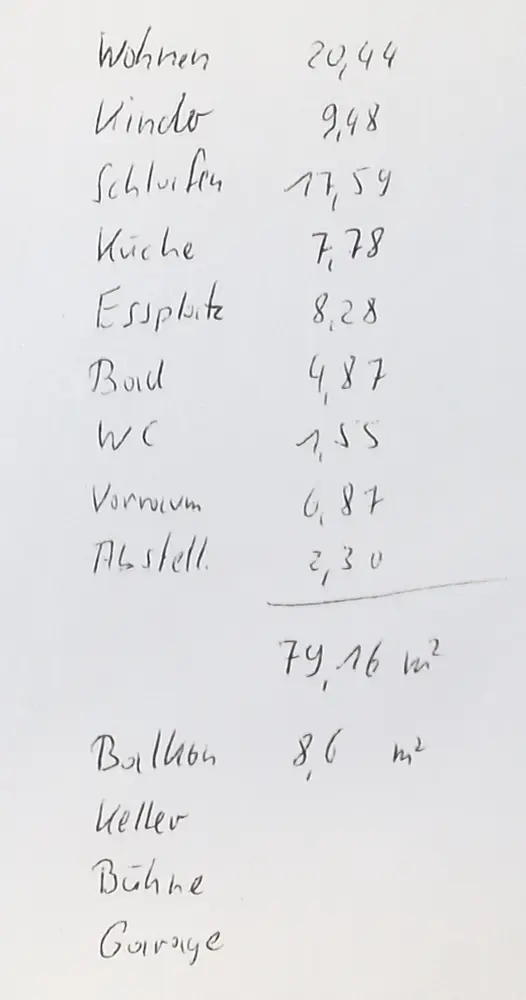 Wohnen 20,44
Kinder 9,48
Schlafen 17,59
Küche 7,78
Essplatz 8,28
Bad 4,87
WC 1,55
Vorraum 6,87
Abstell. 2,30
79,16 m²
Balkon 8,6 m²
Keller
Bühne
Garage